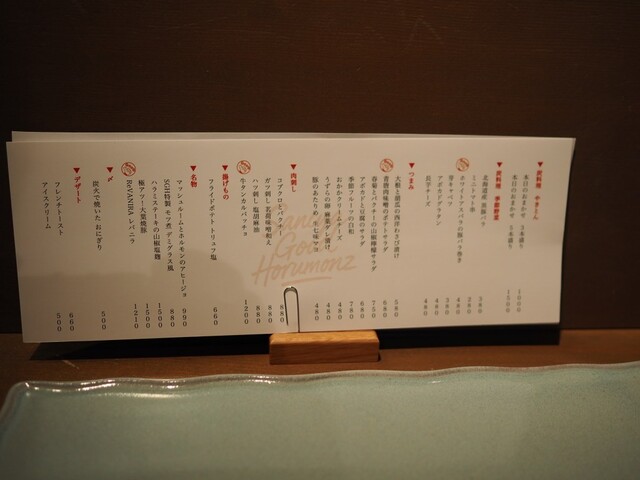 ▼炭料理 やきとん
本日のおまかせ 3本盛り 1000
本日のおまかせ 5本盛り 1500
▼炭料理 季節野菜
北海道産 豚バラ 380
ミニトマト串 280
ホワイトアスパラの豚バラ巻き 480
芽キャベツ 380
アボカドグラタン 480
長芋チーズ 480
▼つまみ
大根と胡瓜の西洋わさび漬け 580
青唐肉味噌のポテトサラダ 680
春菊とパクチーの山椒檸檬サラダ 750
アボカドと豆腐のサラダ 680
季節フルーツの白和 780
おかかクリームチーズ 480
うずらの卵 麻薬ダレ漬け 480
豚のあたりめ 生七味マヨ 480
▼肉刺し
コブクロとパクチー 880
ガツ刺し 茗荷味噌和え 880
ハツ刺し 塩胡麻油 880
牛タンカルパッチョ 1200
▼揚げもの
フライドポテト トリュフ塩 660
▼名物
マッシュルームとホルモンのアヒージョ 990
SGH特製 モツ煮 デミグラス風 880
ハラミステーキの山椒塩麹 1500
極アツ一大葉焼豚 1500
ReVANIRA レバニラ 1210
▼〆
炭火で焼いた おにぎり 500
▼デザート
フレンチトースト 660
アイスクリーム 500
Sand
Goo
Horumonz